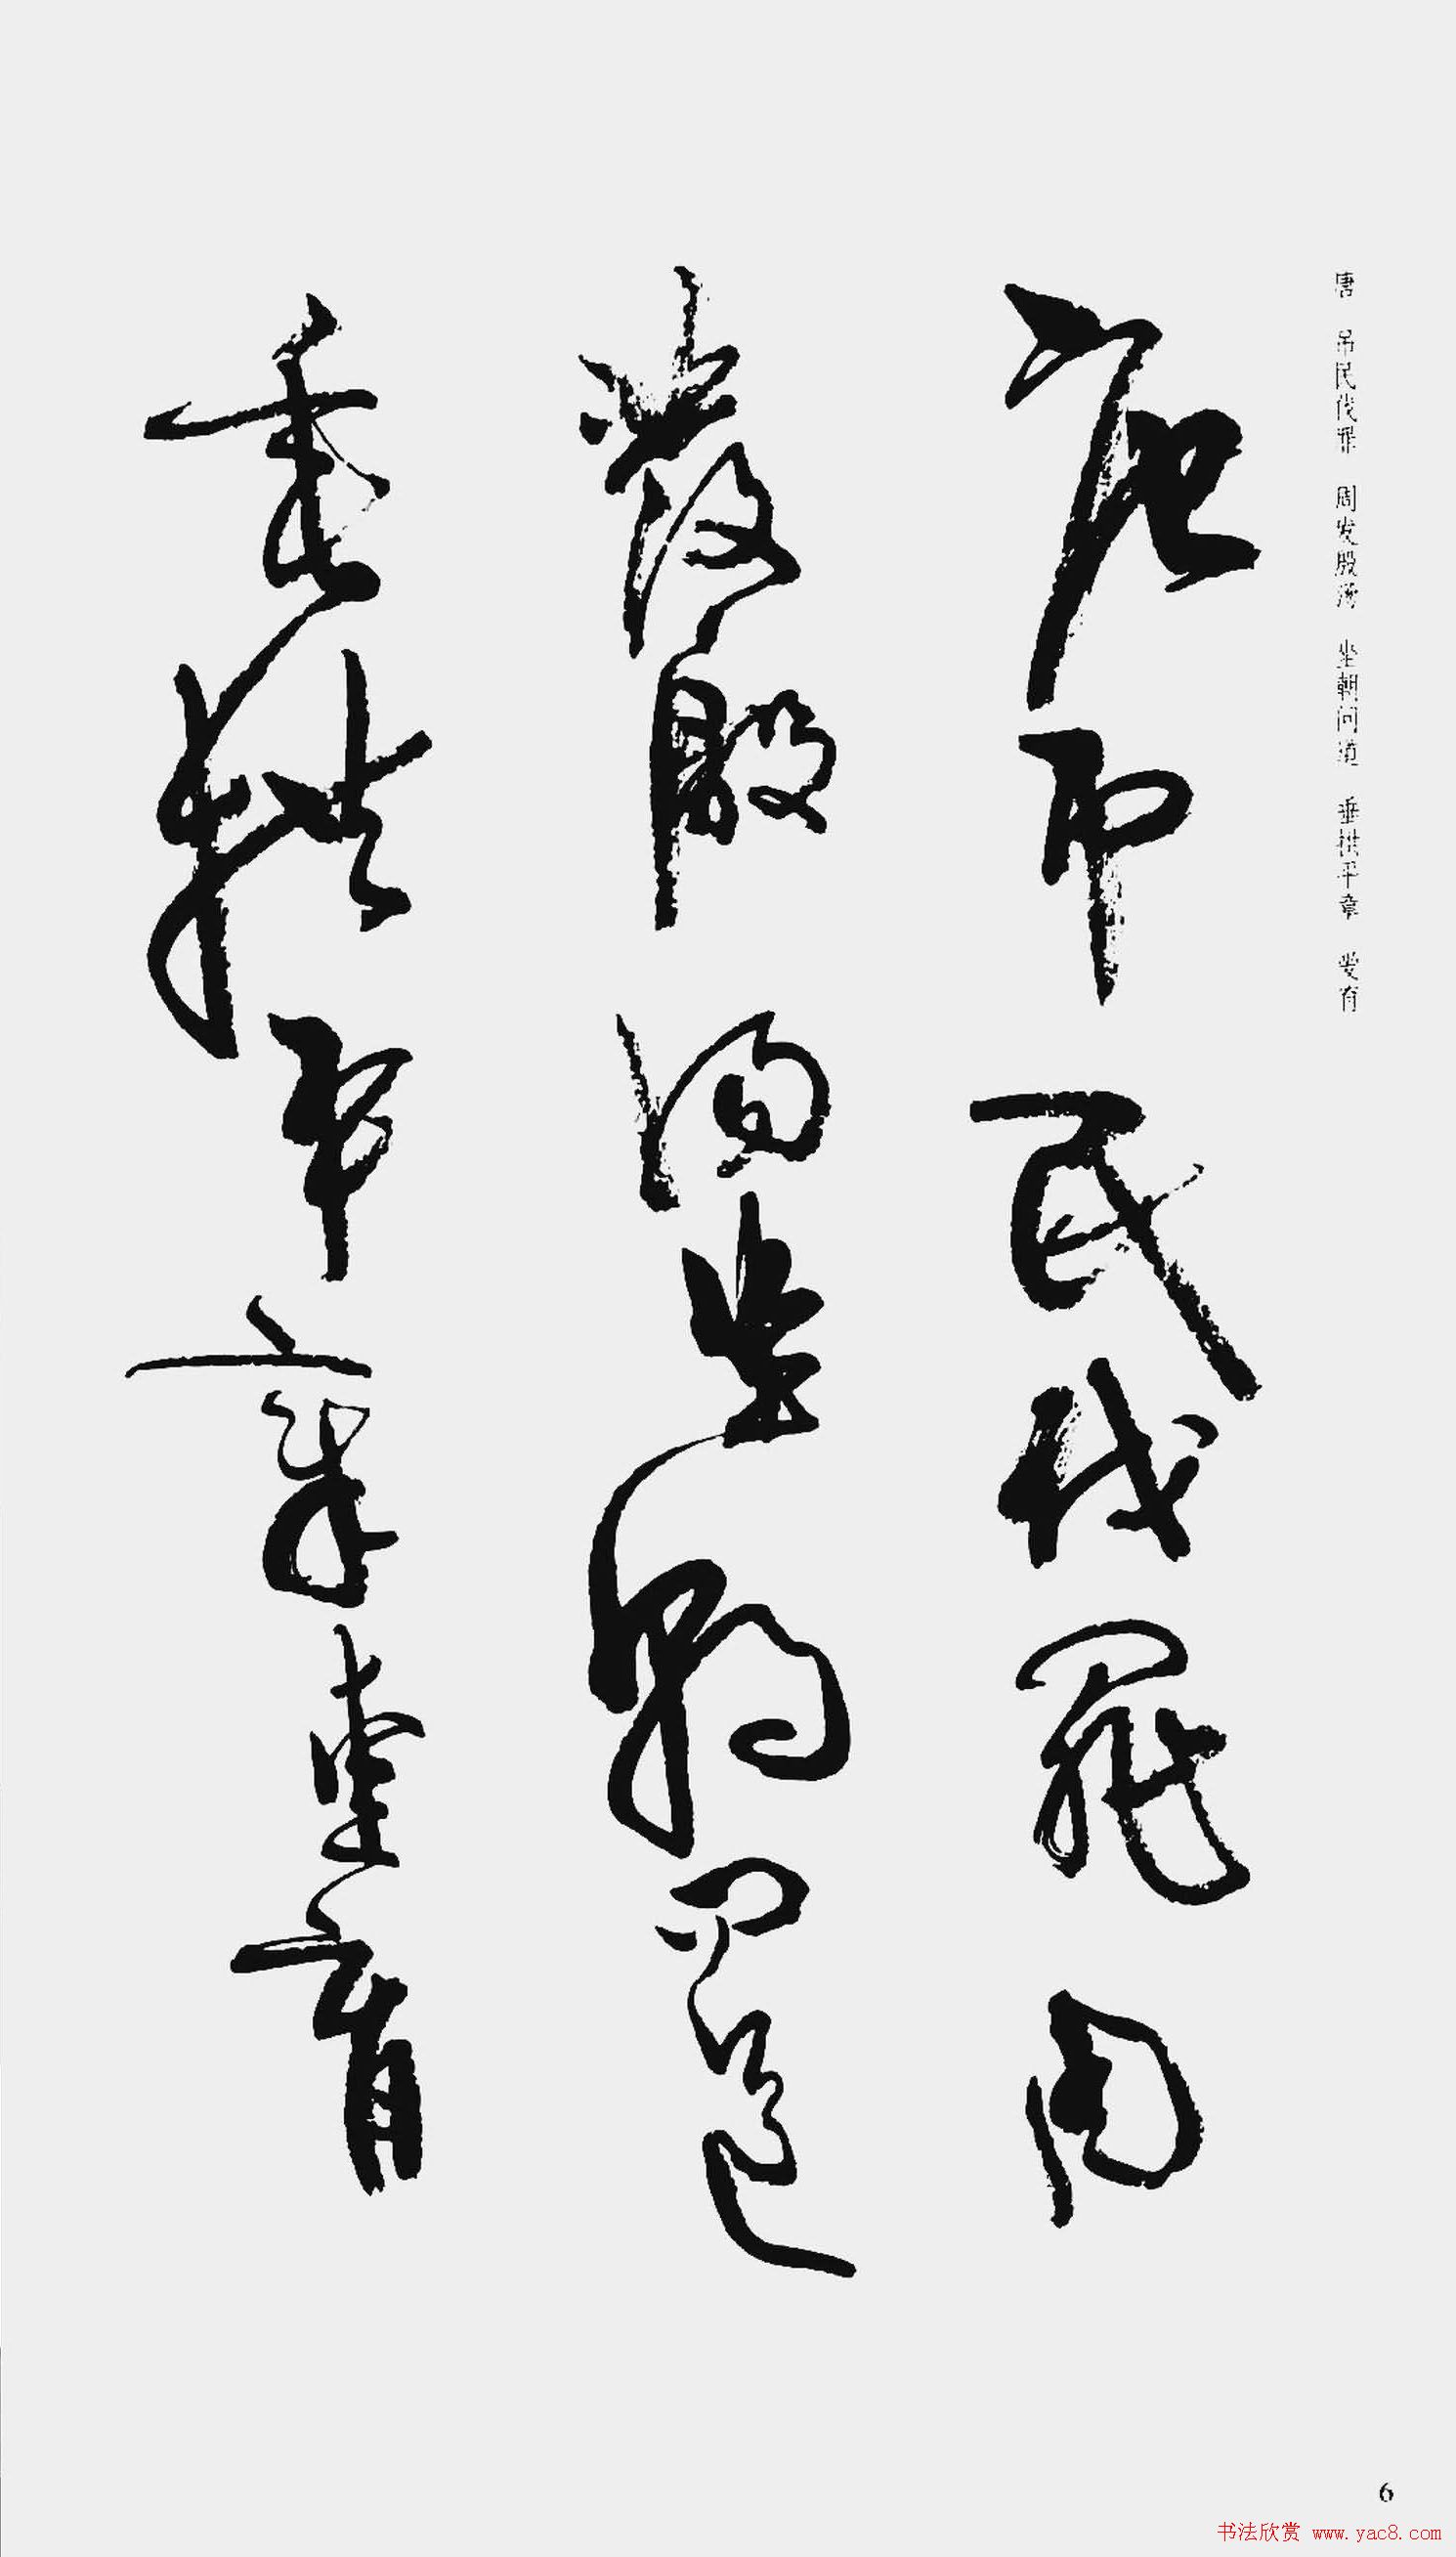 唐 吊民伐罪 周发殷汤 坐朝问道 垂拱平章 爱育
唐吊民伐罪周
發殷湯坐朝問道
垂拱平章愛育
6
书法欣赏 www.yac8.com